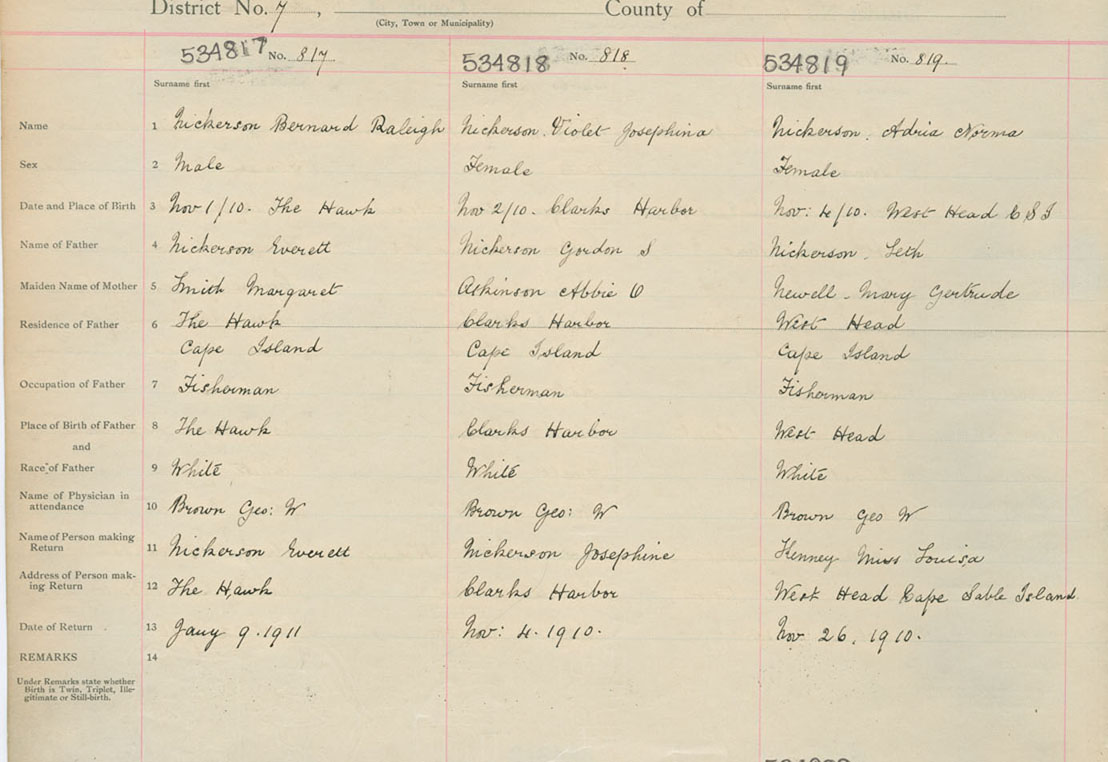 District No. 7, County of
(City, Town or Municipality)
534817 No. 817 534818 No. 818. 534819 No. 819.
Surname first Surname first Surname first
Name 1 Nickerson Bernard Raleigh Nickerson. Violet Josephina Nickerson. Adria Norma
Sex 2 Male Female Female
Date and Place of Birth 3 Nov 1/10. The Hawk Nov 2/10. Clarks Harbor Nov: 4/10. West Head C S I
Name of Father 4 Nickerson Everett Nickerson Gordon S Nickerson. Seth
Maiden Name of Mother 5 Smith Margaret Atkinson Abbie O Newell - Mary Gertrude
Residence of Father 6 The Hawk Clarks Harbor West Head
Cape Island Cape Island Cape Island
Occupation of Father 7 Fisherman Fisherman Fisherman
Place of Birth of Father 8 The Hawk Clarks Harbor West Head
and
Race of Father 9 White White White
Name of Physician in
attendance 10 Brown Geo: W Brown Geo: W Brown Geo W
Name of Person making
Return 11 Nickerson Everett Nickerson Josephine Kenney Miss Louisa
Address of Person mak-
ing Return 12 The Hawk Clarks Harbor West Head Cape Sable Island
Date of Return 13 Jany 9. 1911 Nov: 4. 1910. Nov 26. 1910.
REMARKS 14
Under Remarks state whether
Birth is Twin, Triplet, Ille-
gitimate or Still-birth.